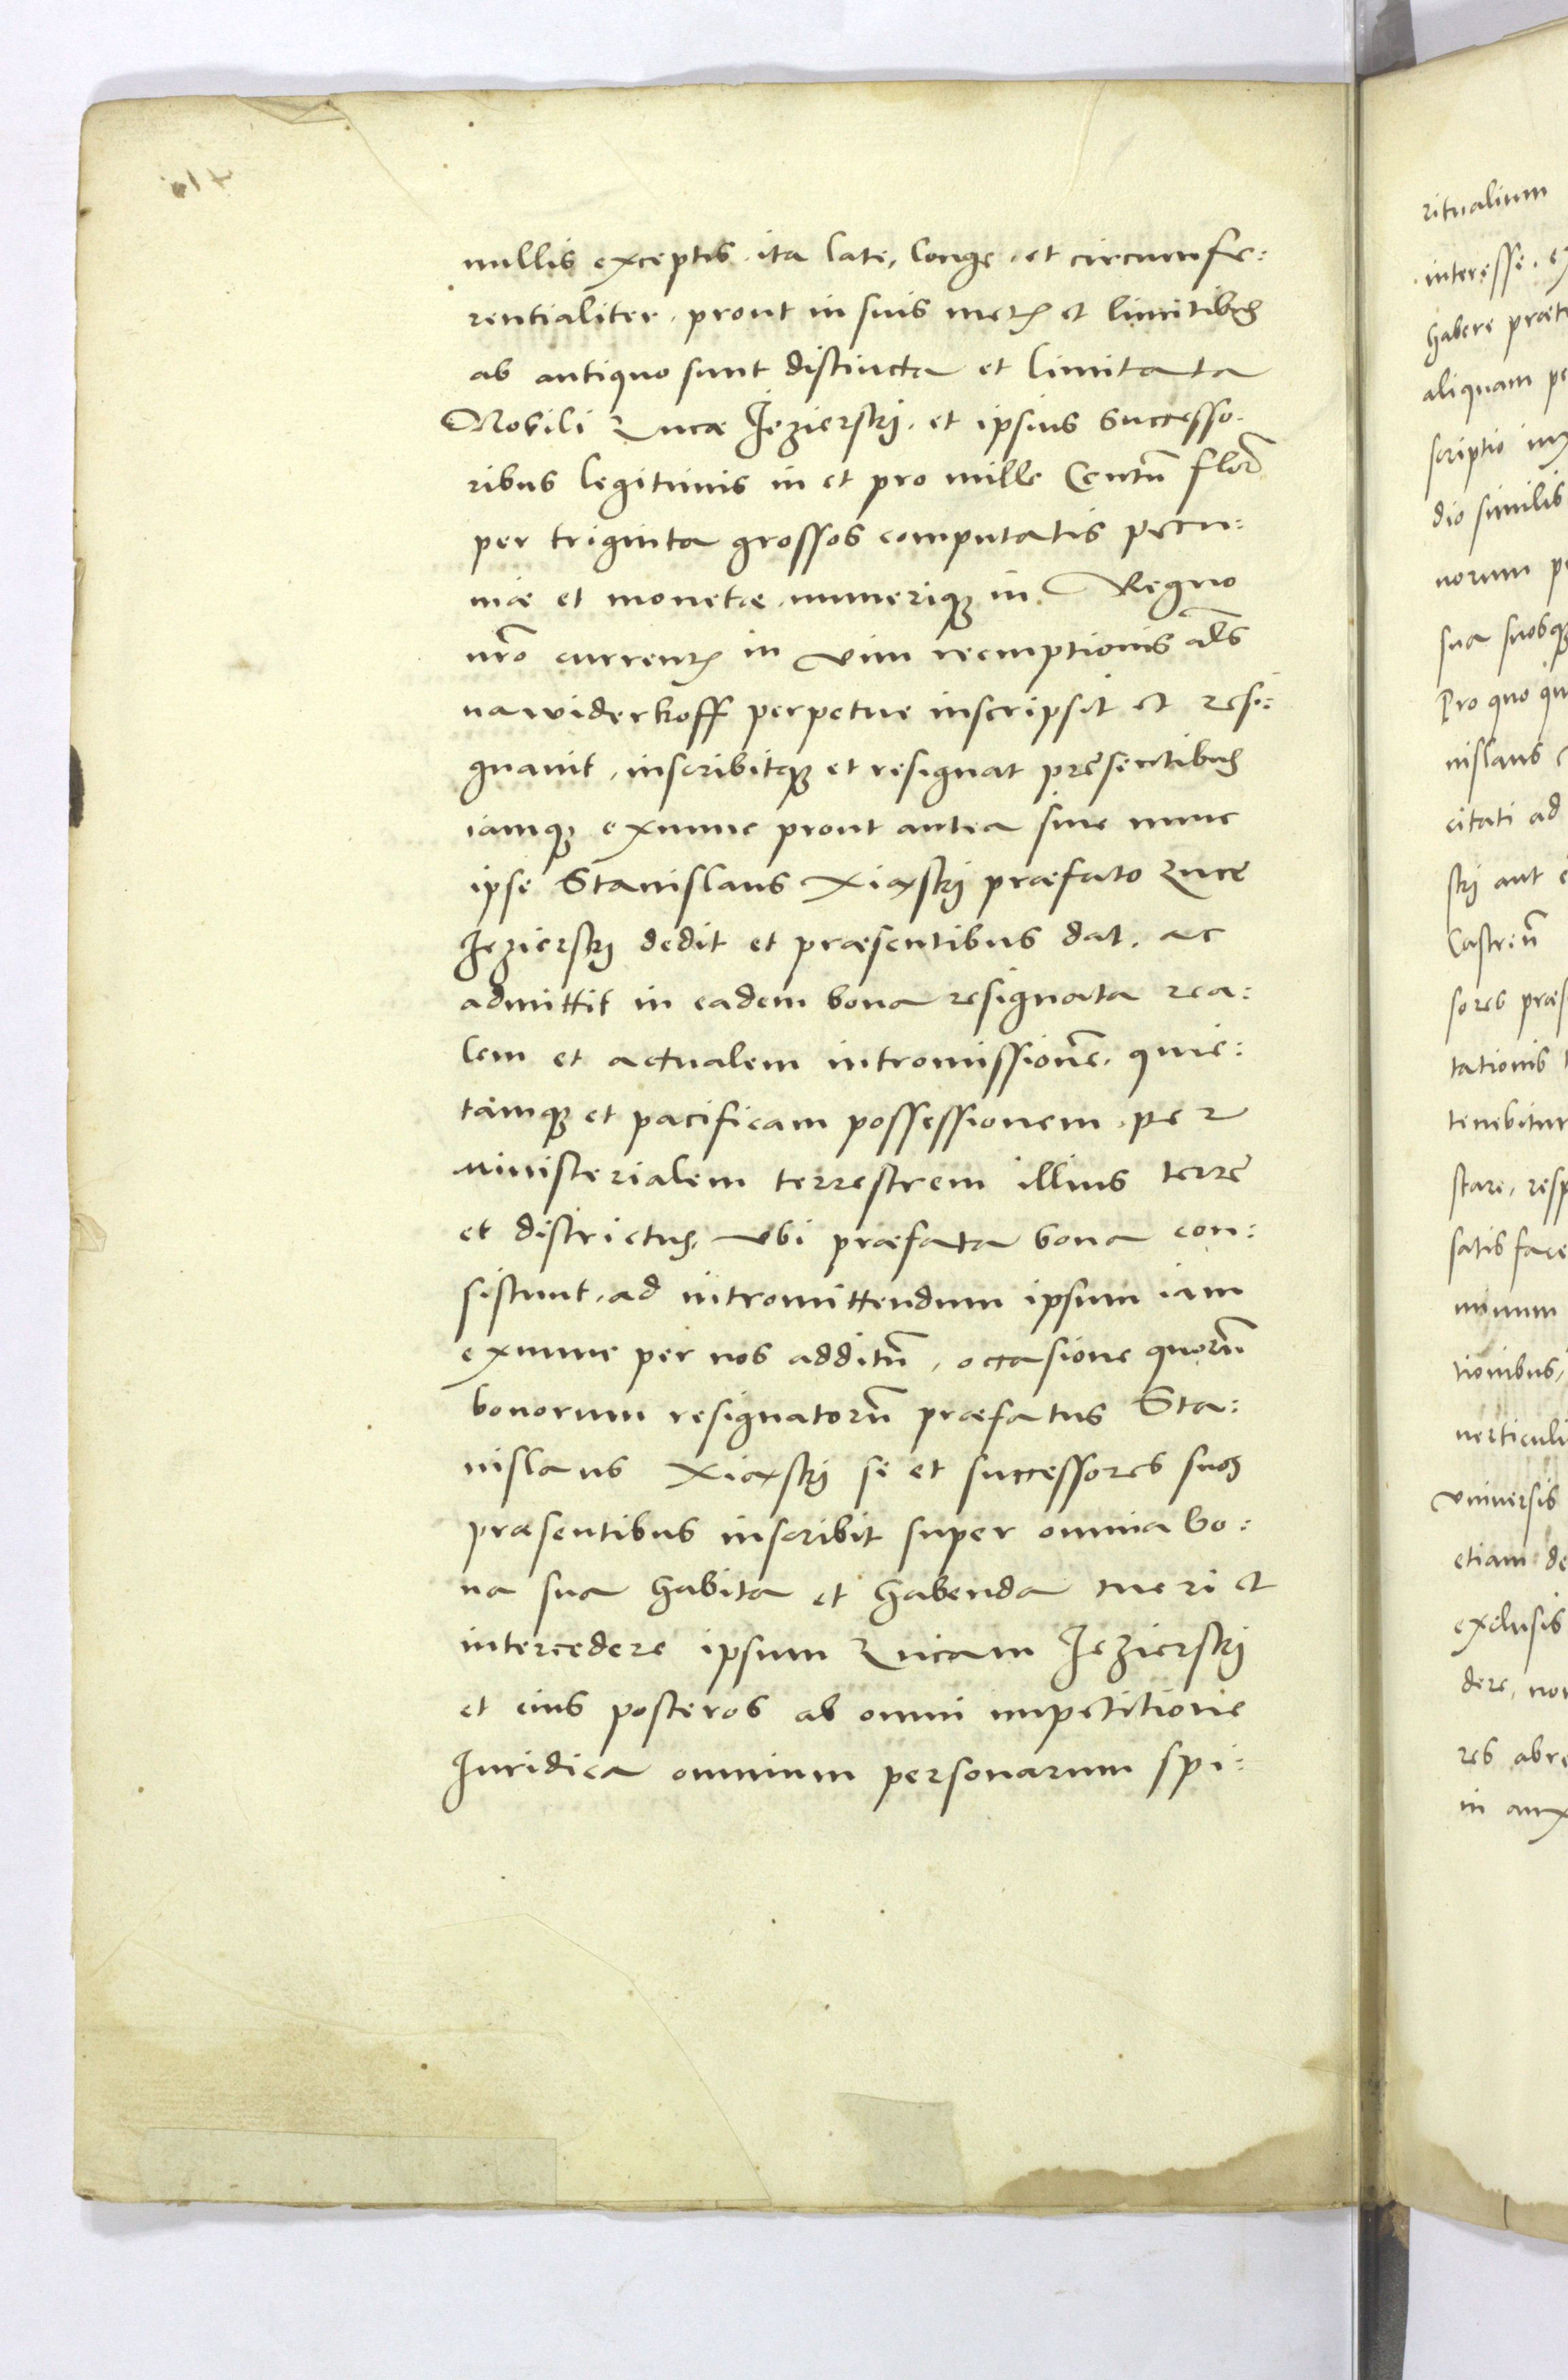 nullis exceptis, ita late, longe, et circumfe:
rentialiter, prout in suis metis et limitibus
ab antiquo sunt distincta et limitata
Nobili Lucæ Jezierskj, et ipsius successo-
ribus legitimis in et pro mille Centũ florẽ
per triginta grossos computatis pecu:
niæ et monetæ, numeriqȝ in Regno
nr̃o currentis in vim reemptionis al̃s
nawiderkoff perpetue inscripsit et resi:
gnauit, inscribitqȝ et resignat presentibus
iamqȝ exnunc prout antea siue nunc
ipse Stanislaus Xiaskj præfato Luce
Jezierskj dedit et præsentibus dat, ac
admittit in eadem bona resignata rea:
lem et actualem intromissionẽ, quie:
tamqȝ et pacificam possessionem, per
ministerialem terrestrem illius terre
et districtus, vbi præfata bona con:
sistunt, ad intromittendum ipsum iam
exnunc per nos additũ, occasione quorũ
bonorum resignatorũ præfatus Sta:
nislaus Xiaskj se et successores suos
præsentibus inscribit super omnia bo:
na sua habita et habenda tueri et
intercedere ipsum Lucam Jezierskj
et eius posteros ab omni impetitione
Juridica omnium personarum spi:
ritualium
interesse,
habere
aliquam
scriptio
dio similis
norum
sua suosqȝ
Pro quo
nislaus
citati ad
skj aut
Castreñ
sores
tationis
tenebitur
stare,
satisface
tionibus,
verticuli
vniuersis
etiam de
exclusis
dere,
res
in